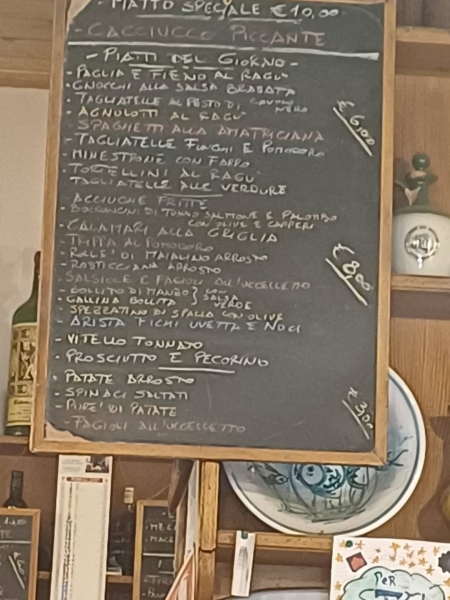 PIATTO SPECIALE € 10,00
- CACCIUCCO PICCANTE
- PIATTI DEL GIORNO -
- PAGLIA E FIENO AL RAGU'
- GNOCCHI ALLA SALSA BRASATA
- TAGLIATELLE AL PESTO DI CAVOLO NERO
- AGNOLOTTI AL RAGU'
- SPAGHETTI ALLA AMATRICIANA
€ 6,00
- TAGLIATELLE FUNGHI E POMODORO
- MINESTRONE CON FARRO
- TORTELLINI AL RAGU'
TAGLIATELLE ALLE VERDURE
- ACCIUGHE FRITTE
- BOCCONCINI DI TONNO SALMONE E PALOMBO
CON OLIVE E CAPPERI
- CALAMARI ALLA GRIGLIA
- TRIPPA AL POMODORO
- ROLE' DI MAIALINO ARROSTO
- ROSTICCIANA ARROSTO
€ 8,00
- SALSICCE E FAGIOLI ALL'UCCELLETTO
- BOLLITO DI MANZO } CON
- GALLINA BOLLITA } SALSA VERDE
- SPEZZATINO DI SPALLA CON OLIVE
- ARISTA FICHI UVETTA E NOCI
- VITELLO TONNATO
- PROSCIUTTO E PECORINO
- PATATE ARROSTO
- SPINACI SALTATI
€ 3,00
- PURE' DI PATATE
- FAGIOLI ALL'UCCELLETTO
PER